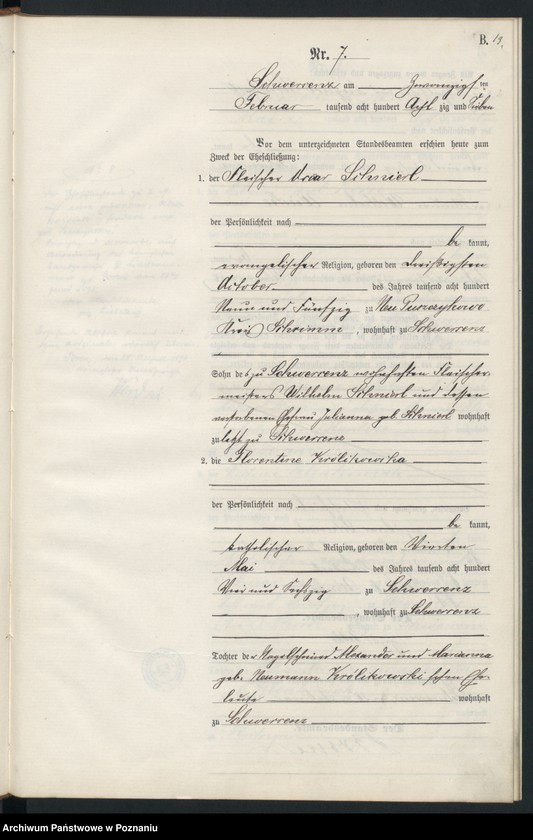 B. 13.
Nr. 7.
Schwersenz am Zwanzigsten
Februar tausend acht hundert Acht zig und Sieben
Vor dem unterzeichneten Standesbeamten erschien heute zum
Zweck der Eheschließung:
1. der Fleischer Oscar Schmierl
der Persönlichkeit nach
be kannt,
evangelischer Religion, geboren den Dreißigsten
October des Jahres tausend acht hundert
Neun und Fünfzig zu Neu
Kreis Schrimm, wohnhaft zu Schwersenz
Sohn des zu Schwersenz wohnhaften Fleischer-
meisters Wilhelm Schmierl und dessen
verstorbenen Ehefrau Julianna geb. Schmierl wohnhaft
zuletzt zu Schwersenz
2. die Florentine Królikowska
der Persönlichkeit nach
be kannt,
katholischer Religion, geboren den Vierten
Mai des Jahres tausend acht hundert
Drei und Sechszig zu Schwersenz
, wohnhaft zu Schwersenz
Tochter der Nagelschmied Alexander und Marianna
geb. Neumann Królikowski'schen Ehe-
leute wohnhaft
zu Schwersenz
Archiwum Państwowe w Poznaniu